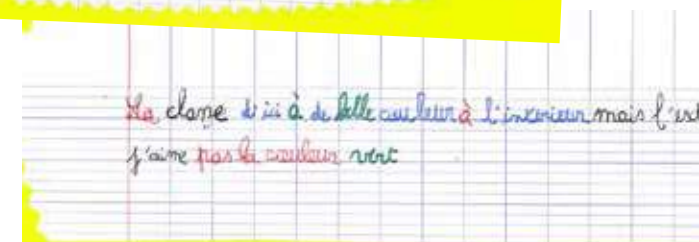 La classe d'ici à de belle couleur à l'interieur mais
j'aime pas la couleur vert